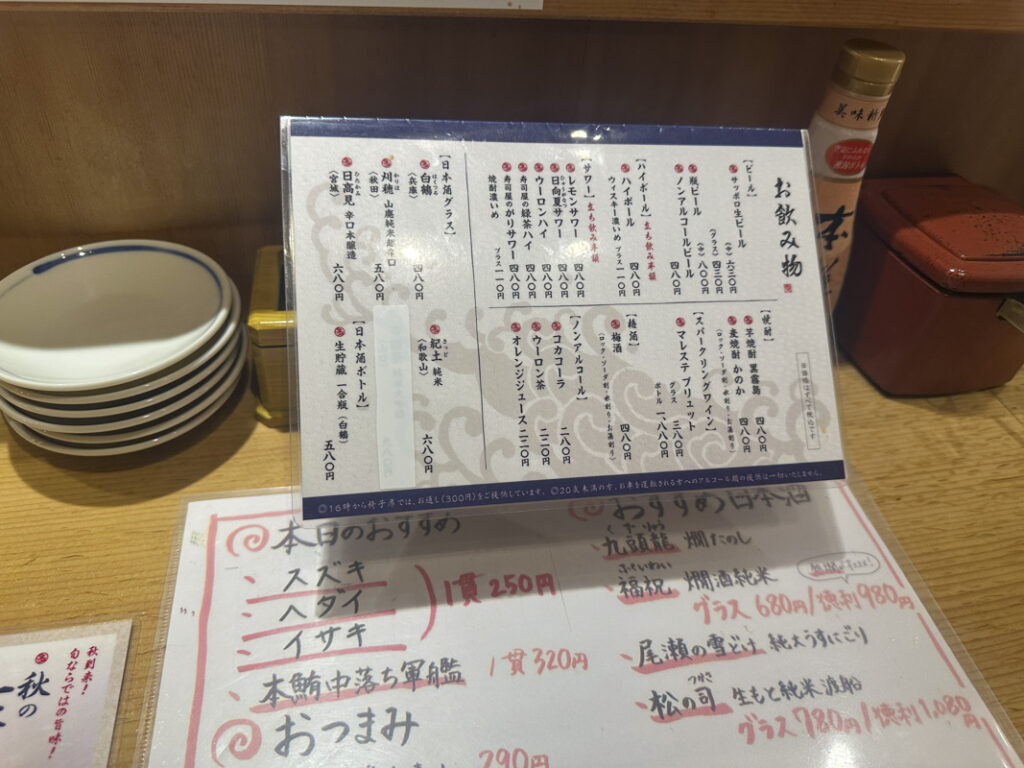 お飲み物
【ビール】
サッポロ生ビール
(中) 六三〇円
(グラス) 四三〇円
瓶ビール
(中) 八〇〇円
ノンアルコールビール
四八〇円
【ハイボール】立ち飲み半額
ハイボール
四八〇円
ウィスキー濃いめ プラス一一〇円
【サワー】立ち飲み半額
レモンサワー 四八〇円
日向夏サワー 四八〇円
ウーロンハイ 四八〇円
寿司屋の緑茶ハイ 四八〇円
寿司屋のがりサワー 四八〇円
焼酎濃いめ プラス一一〇円
【焼酎】
芋焼酎 黒霧島 四八〇円
麦焼酎 かのか 四八〇円
(ロック・ソーダ割り・水割り・お湯割り)
【スパークリングワイン】
マレステ ブリュット
グラス 三八〇円
ボトル 一、八八〇円
【梅酒】
梅酒 四八〇円
(ロック・ソーダ割り・水割り・お湯割り)
【ノンアルコール】
コカコーラ 二八〇円
ウーロン茶 二二〇円
オレンジジュース 二二〇円
※価格はすべて税込です
【日本酒グラス】
はくつる
白鶴
(兵庫)
四八〇円
かりほ
刈穂 山廃純米超辛口
(秋田)
五八〇円
ひたかみ
日高見 辛口本醸造
(宮城)
六八〇円
きっど
紀土 純米
(和歌山)
六八〇円
【日本酒ボトル】
生貯蔵 一合瓶 (白鶴)
五八〇円
◎16時から椅子席では、お通し(300円)をご提供しています。◎20歳未満の方、お車を運転される方へのアルコール類の提供は一切いたしません。
本日のおすすめ
スズキ
ヘダイ
イサキ
1貫250円
本鮪中落ち軍艦 1貫320円
おつまみ
290円
おすすめ日本酒
くずりゅう
九頭龍 燗たのし
ふくいわい
福祝 燗酒純米
グラス680円/徳利980円
尾瀬の雪どけ 純大うすにごり
つかさ
松の司 生もと純米渡船
グラス780円/徳利1,080円
秋到来!
旬ならではの旨味!
秋の
美味
本